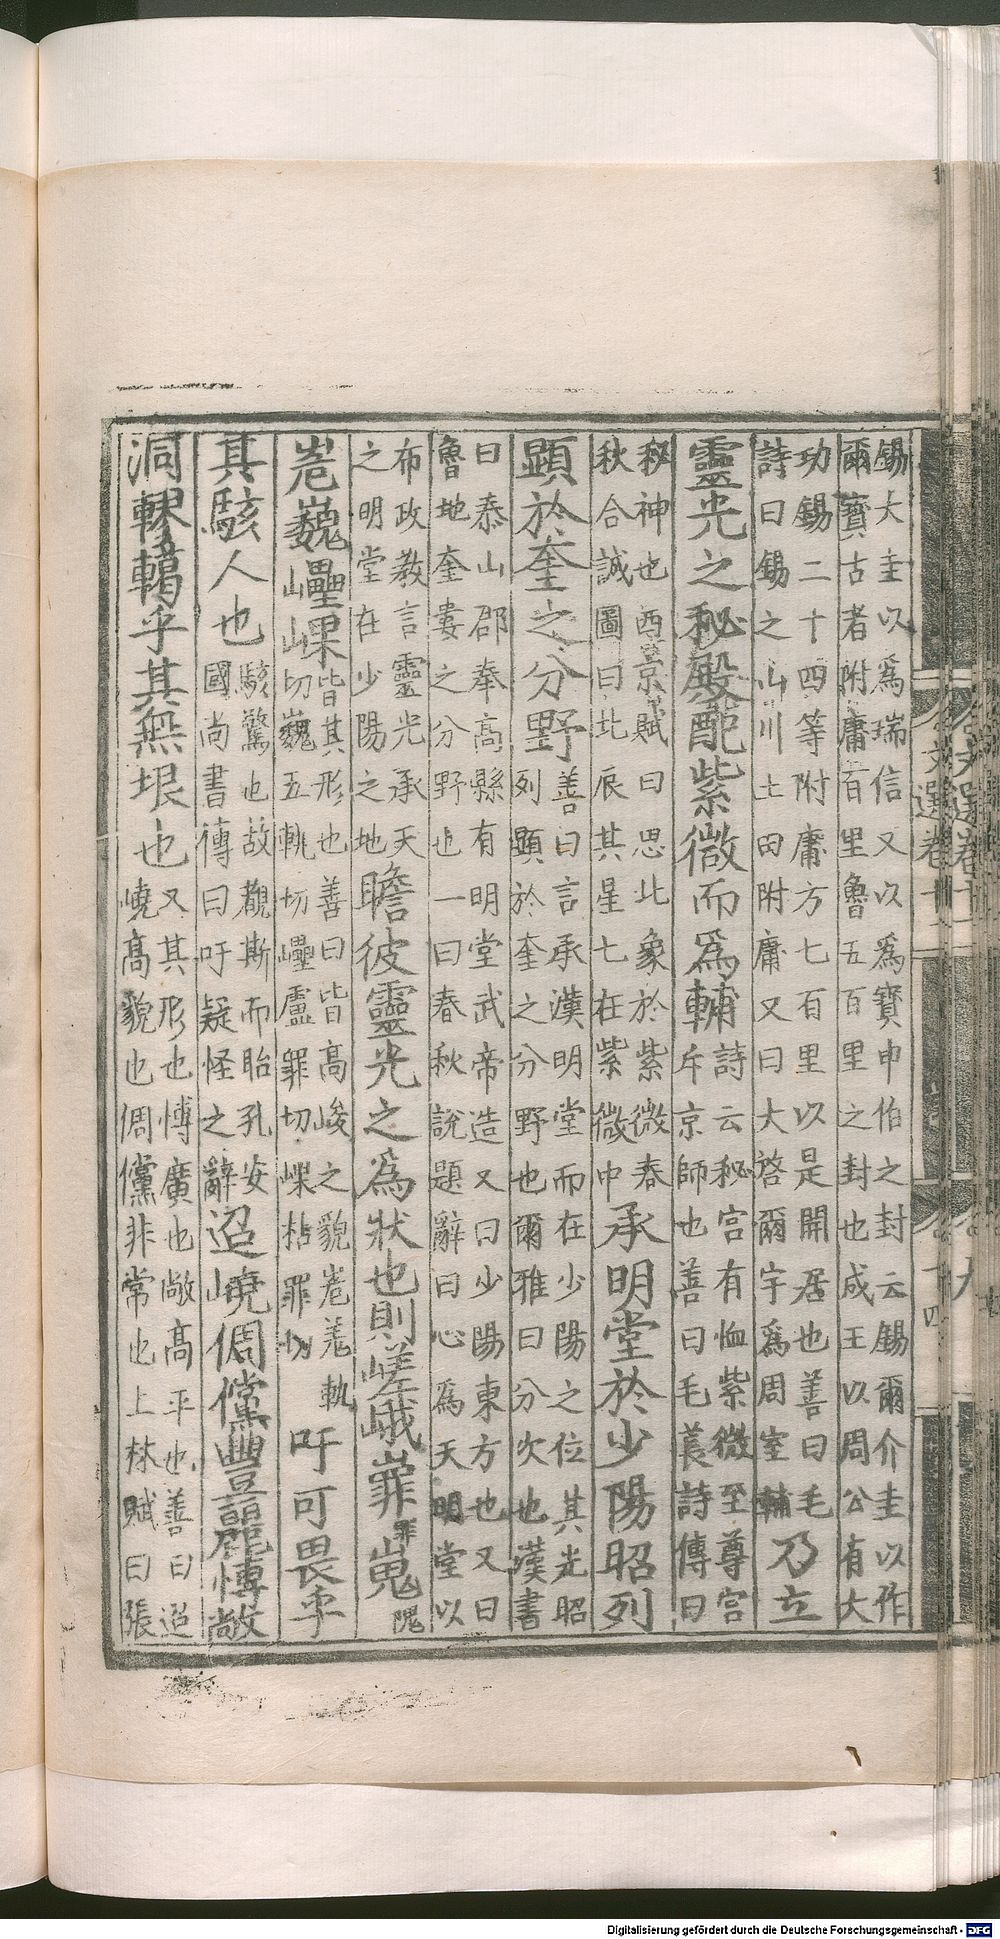 錫大圭以爲瑞信又以爲寶申伯之封云錫爾介圭以作
爾寶古者附庸百里魯五百里之封也成王以周公有大
功錫二十四等附庸方七百里以是開居也善曰毛
詩曰錫之山川土田附庸又曰大啓爾宇爲周室輔
乃立
靈光之秘殿配紫微而爲輔
詩云秘宮有恤紫微至尊宮
斥京師也善曰毛萇詩傳曰
秘神也西京賦曰思北象於紫微春
秋合誠圖曰北辰其星七在紫微中
承明堂於少陽昭列
顯於奎之分野
善曰言承漢明堂而在少陽之位其光昭
列顯於奎之分野也爾雅曰分次也漢書
曰泰山郡奉高縣有明堂武帝造又曰少陽東方也又曰
魯地奎婁之分野也一曰春秋說題辭曰心爲天明堂以
布政教言靈光承天
之明堂在少陽之地
瞻彼靈光之爲狀也則嵯峨嶵罪嵬隗
峞巍㠥𡾊
皆其形也善曰皆高峻之貌峞羌軌
切巍五軌切㠥盧罪切𡾊枯罪切
吁可畏乎
其駭人也
駭驚也故觀斯而眙孔安
國尚書傳曰吁疑怪之辭
迢嶢倜儻豐麗博敞
洞轇轕乎其無垠也
又其形也博廣也敞高平也善曰迢
嶢高貌也倜儻非常也上林賦曰張
文選卷十一
十四
九
Digitalisierung gefördert durch die Deutsche Forschungsgemeinschaft - DFG